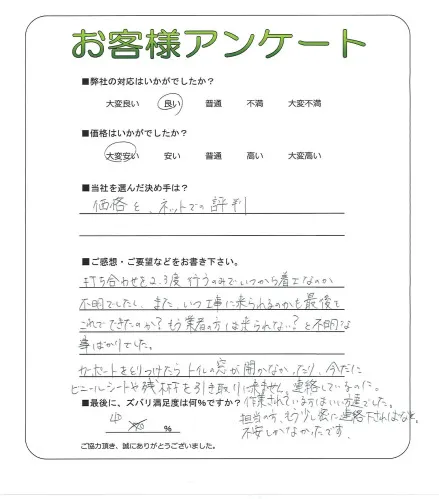 お客様アンケート
■弊社の対応はいかがでしたか？
大変良い 良い 普通 不満 大変不満
■価格はいかがでしたか？
大変安い 安い 普通 高い 大変高い
■当社を選んだ決め手は？
価格と、ネットでの評判
■ご感想・ご要望などをお書き下さい。
打ち合わせを2,3度行うのみでいつから着工なのか
不明でしたし、また、いつ工事に来られるのかも最後も
これでできたのか？もう業者の方は来られない？と不明な
事ばかりでした。
カーポートをとりつけたらトイレの窓が開かなかったり、今だに
ビニールシートや残材を引き取りに来ません。連絡しているのに。
■最後に、ズバリ満足度は何%ですか？
作業されている方はいい方達でした。
担当の方、もう少し密に連絡下さればなと。
不安しかなかったです。
40
%
ご協力頂き、誠にありがとうございました。